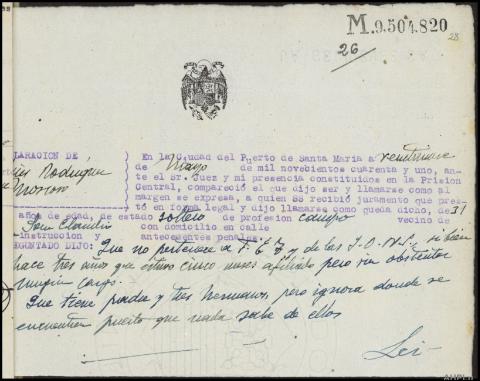 M.9.504.820
26
28
LARACION DE
Rodriguez
En la Ciudad del Puerto de Santa Maria a veintinueve
de Mayo de mil novecientos cuarenta y uno, an-
te el Sr. Juez y mi presencia constituidos en la Prision
Central, compareció el que dijo ser y llamarse como al
margen se expresa, a quien SS recibió juramento que pres-
tó en forma legal y dijo llamarse como queda dicho, de 31
años de edad, de estado soltero de profesion campo vecino de
San Claudio con domicilio en calle
instruccion antecedentes penales
EGUNTADO DIJO: Que no pertenece a F. E. T. y de las J.O.N.S. si bien
hace tres años que estuvo cinco meses afiliado pero sin obstentar
ningun cargo.
Que tiene padre y tres hermanos, pero ignora donde se
encuentran puesto que nada sabe de ellos